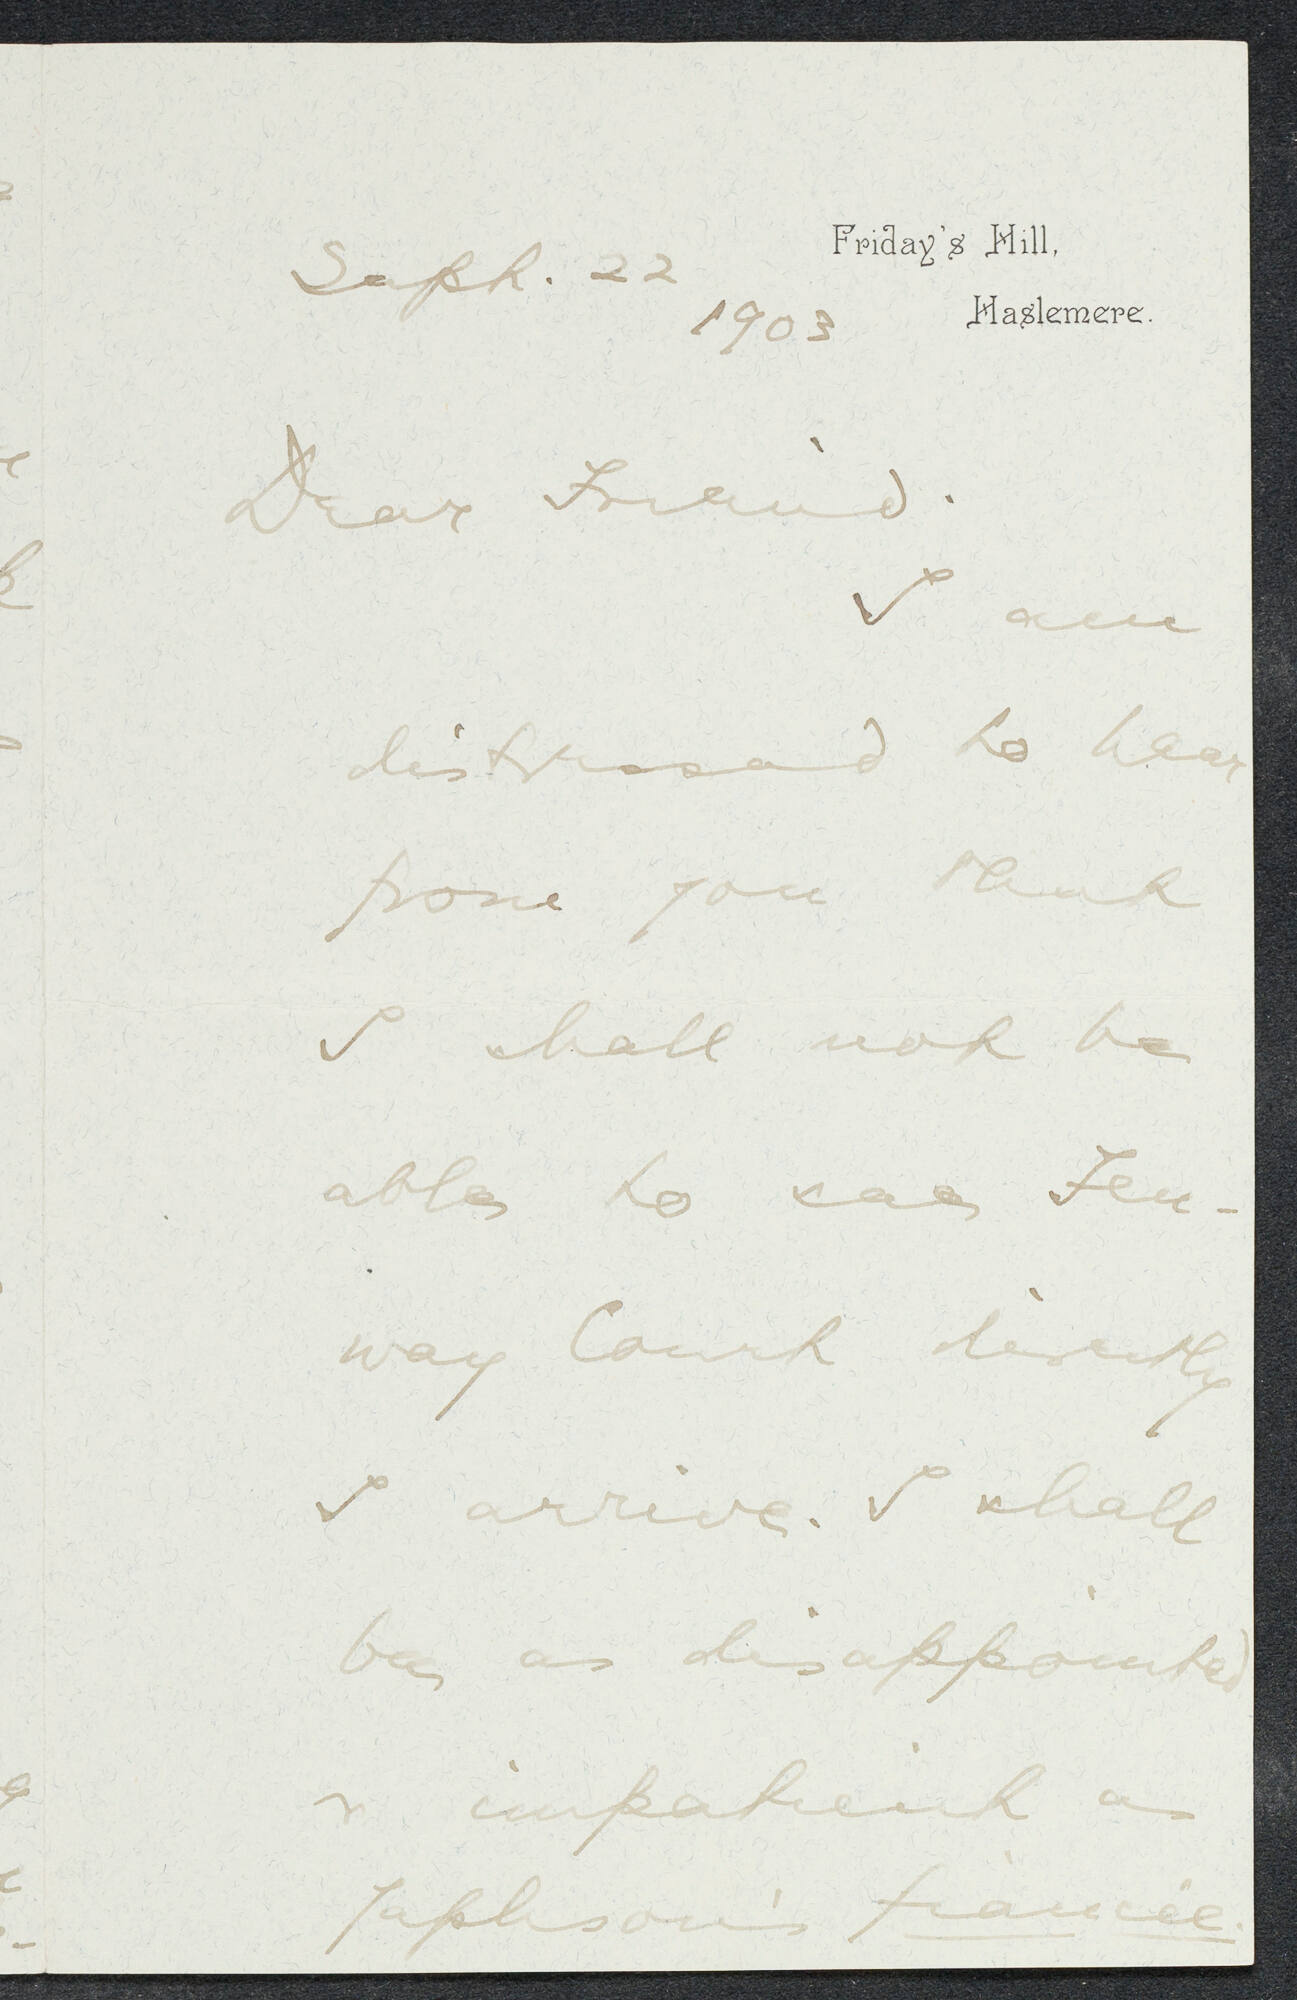 Friday's Hill,
Haslemere.
Sept. 22
1903
Dear Friend.
I am
distressed to hear
from you that
I shall not be
able to see Fen-
way Court directly
I arrive. I shall
be as disappointed
& impatient as
Japhson's fiancée.